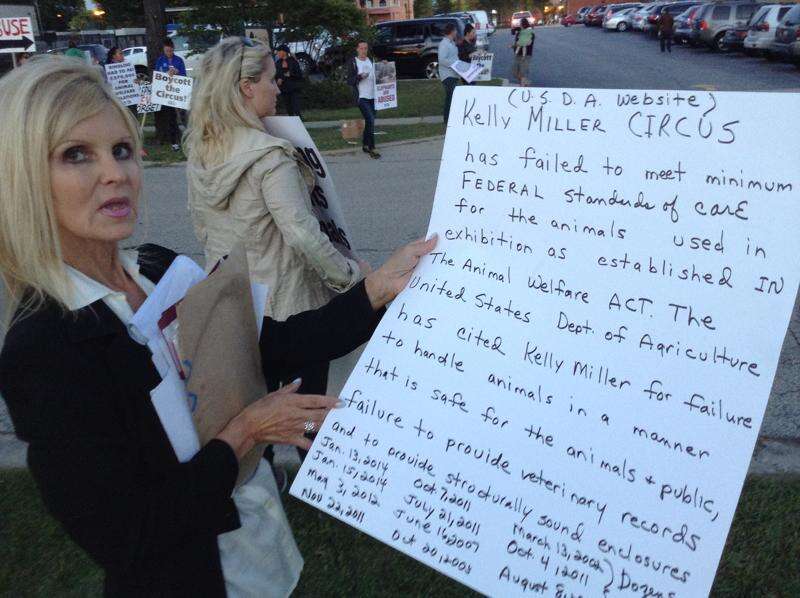 USE
Boycott
the
Circus!
ABUSED
(U.S.D.A. Website)
Kelly MILLER CIRCUS
has failed to meet minimum
FEDERAL Standards of CARE
for the animals used in
exhibition as established IN
The Animal Welfare ACT. The
United States Dept. of Agriculture
has cited Kelly Miller for failure
to handle animals in a manner
that is safe for the animals + public,
failure to provide veterinary records
and to provide structurally sound enclosures
Jan. 13, 2014 Oct 7, 2011 March 13, 2002) Dozens
Jan. 15, 2014 July 21, 2011 Oct 4, 2011
May 3, 2012 June 16, 2007 August 8,
Nov 22, 2011 Oct 20, 2003